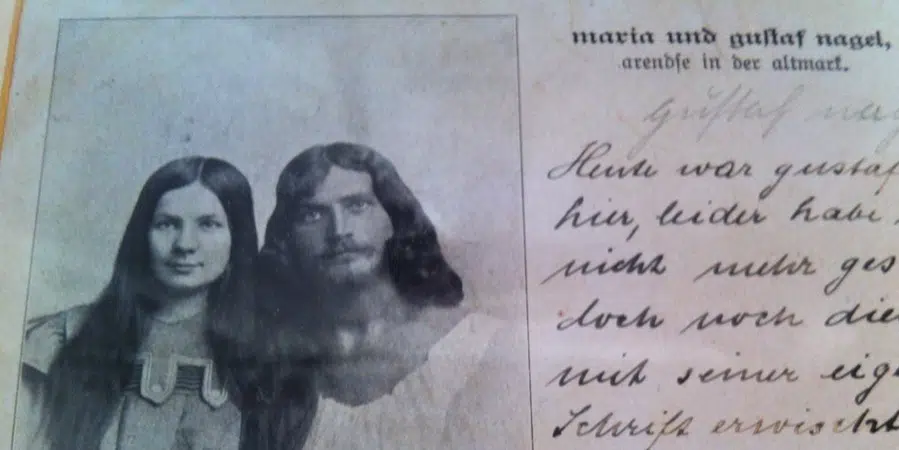 maria und gustaf nagel,
arendse in der altmark.
gustaf nag
Heute war gustaf
hier, leider habe
nicht mehr ges
doch noch die
mit seiner eig
Schrift erwischt